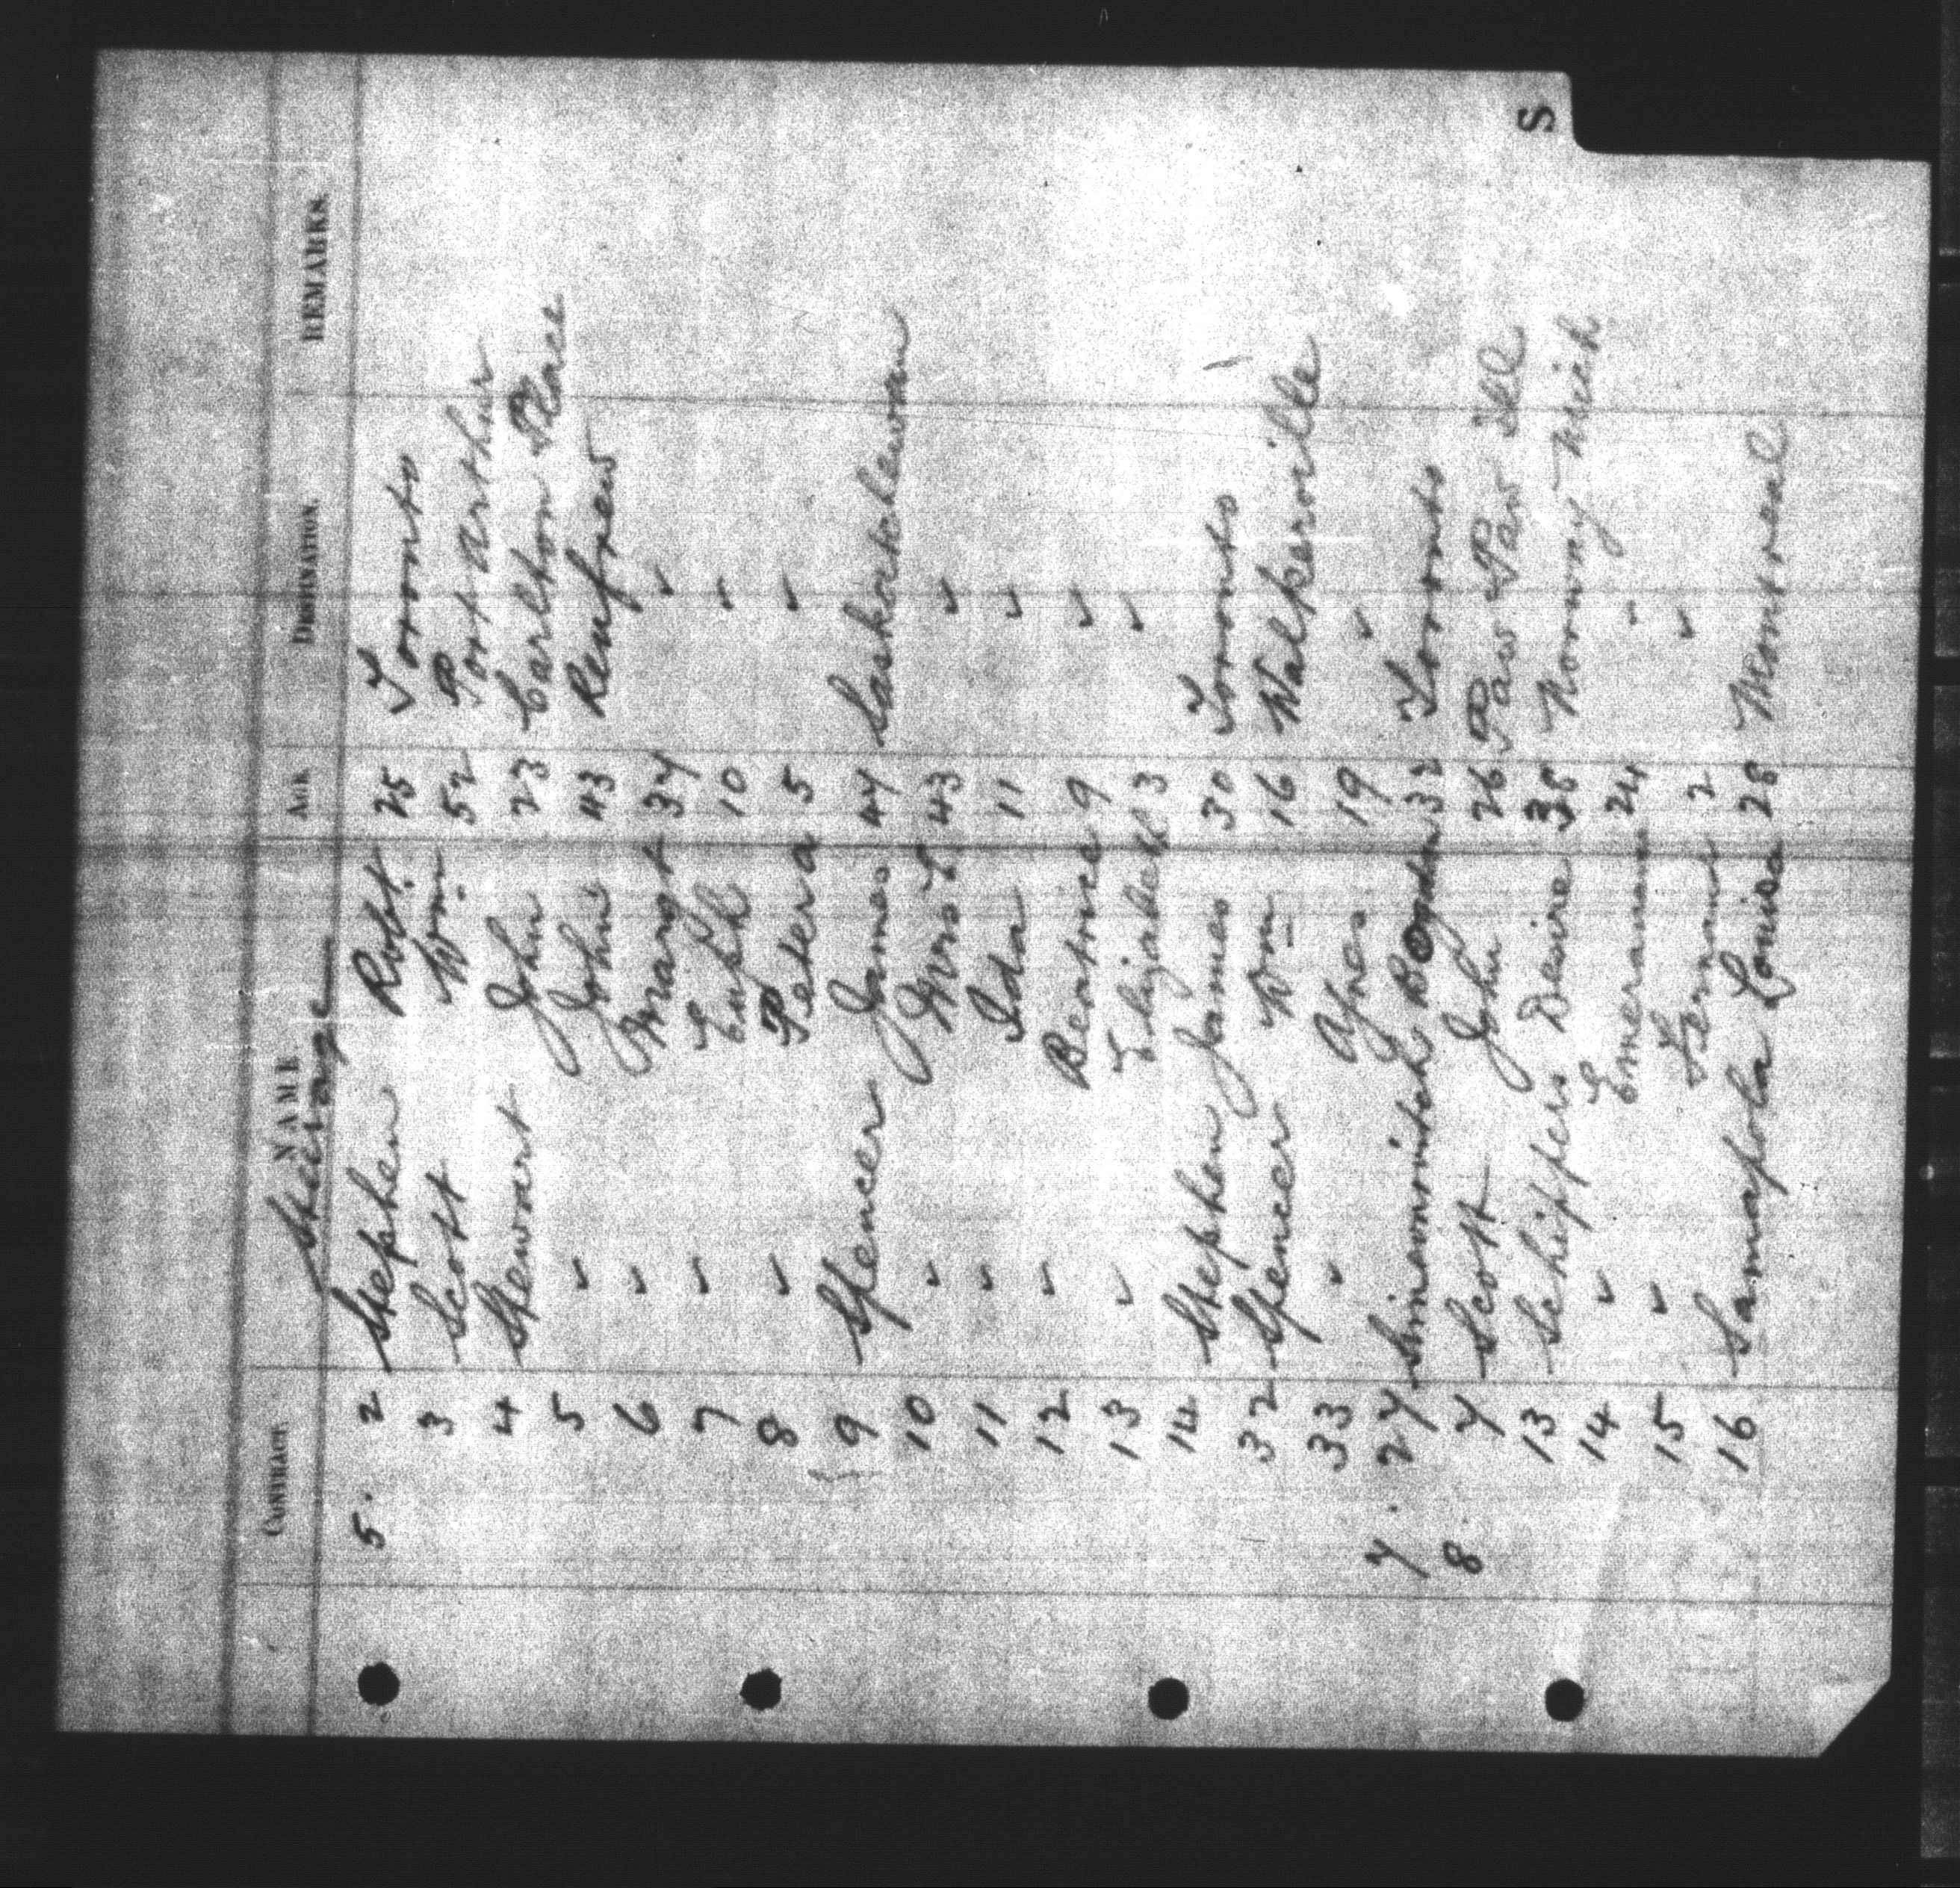 S
CONTRACT. NAME AGE DESTINATION. REMARKS.
Steerage
5. 2 Stephen Robt. 25 Toronto
3 Scott Wm. 52 Port Arthur
4 Stewart John 23 Carlton Place
5 " John 43 Renfrew
6 " Margt 37 "
7 " Euph 10 "
8 " Peter a 5 "
9 Spencer James 47 Saskatchewan
10 " Mrs E 43 "
11 " Ida 11 "
12 " Beatrice 9 "
13 " Elizabeth 3 "
14 Stephen James 30 Toronto
32 Spencer Wm 16 Walkerville
33 " Agnes 19 "
7. 27 Simaonritch Bogdan 32 Toronto
8 7 Scott John 26 Paw Paw Ill
13 Schippers Desire 38 Norway Mich
14 " Emeranem 24 "
15 " Fernan 2 "
16 Samapola Louisa 28 Montreal